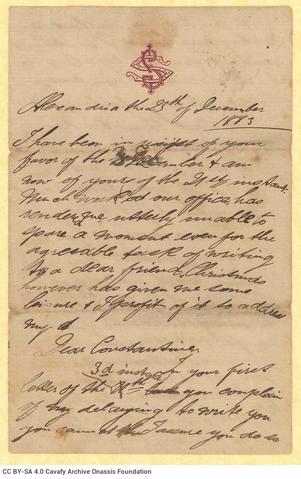 Alexandria the 25th of December
1883
I have been in receipt of your
favor of the & am
now of yours of the 21st instant.
Much work at our office has
rendered me utterly unable to
spare a moment even for the
agreable task of writing
to a dear friend, Christmas
however has given me some
leisure & I profit of it to address
my
Dear Constantine,
3d inst.
In your first
letter of the you complain
of my delaying to write you
you cannot I assure you do so
CC BY-SA 4.0 Cavafy Archive Onassis Foundation